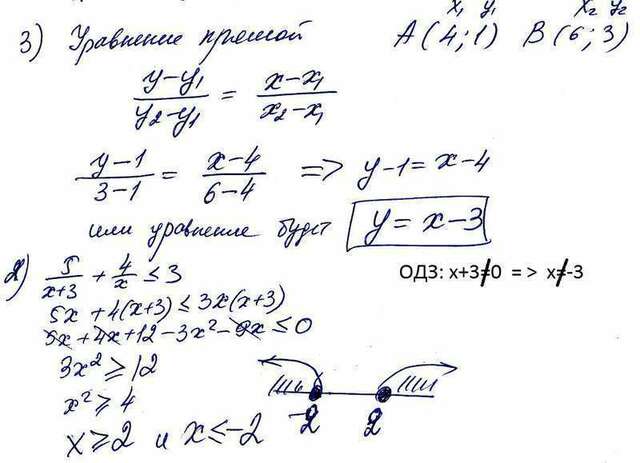 x₁ y₁ x₂ y₂
3) Уравнение прямой A(4;1) B(6;3)
(y-y₁)/(y₂-y₁) = (x-x₁)/(x₂-x₁)
(y-1)/(3-1) = (x-4)/(6-4) => y-1=x-4
или уравнение будет y=x-3
2) 5/(x+3) + 4/x ≤ 3 ОДЗ: x+3≠0 = > x≠-3
5x+4(x+3)≤3x(x+3)
5x+4x+12-3x²-9x≤0
3x²≥12
x²≥4
-2 2
x≥2 и x≤-2